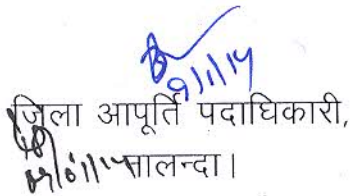 9/1/14
जिला आपूर्ति पदाधिकारी,
नालन्दा।